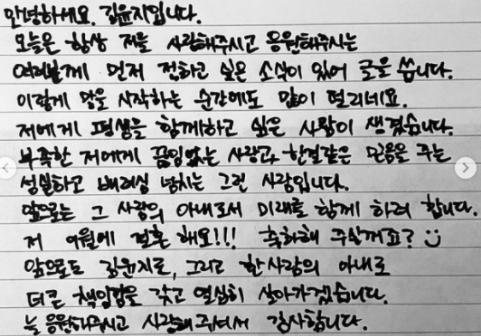 안녕하세요. 김윤지입니다.
오늘은 항상 저를 사랑해주시고 응원해주시는
여러분께 먼저 전하고 싶은 소식이 있어 글을 씁니다.
이렇게 말을 시작하는 순간에도 맘이 떨리네요.
저에게 평생을 함께하고 싶은 사람이 생겼습니다.
부족한 저에게 끊임없는 사랑과 한결같은 믿음을 주는
성실하고 배려심 넘치는 그런 사람입니다.
앞으로는 그 사람의 아내로서 미래를 함께 하려 합니다.
저 9월에 결혼해요!!! 축하해 주실꺼죠? :)
앞으로도 김윤지로, 그리고 한 사람의 아내로
더 큰 책임감을 갖고 열심히 살아가겠습니다.
늘 응원해주시고 사랑해주셔서 감사합니다.